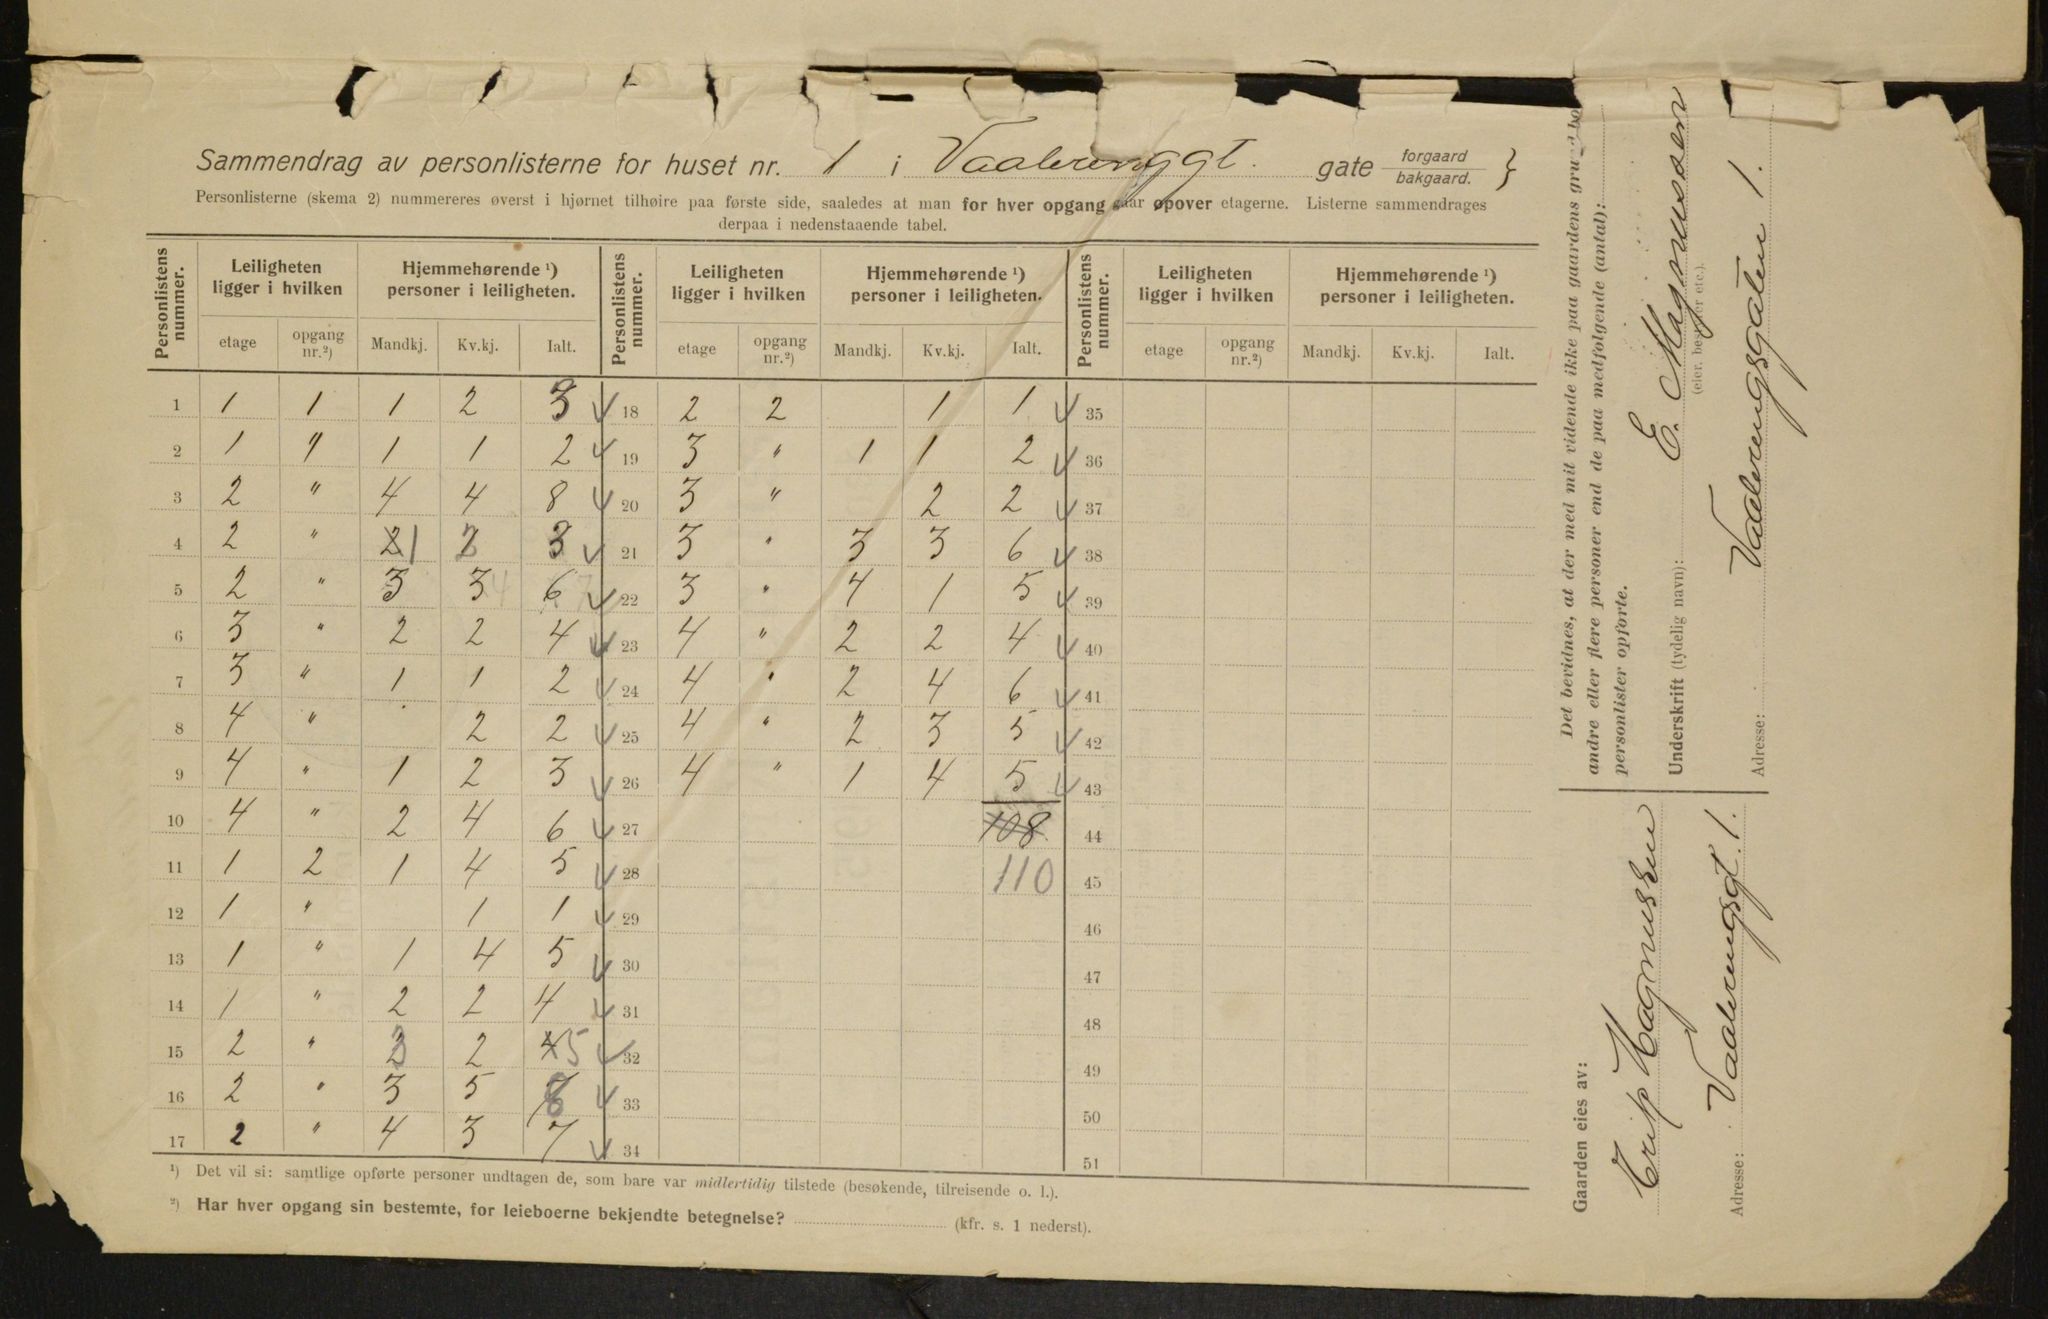 Sammendrag av personlisterne for huset nr. 1 i Vaalerenggt. gate forgaard / bakgaard. }
Personlisterne (skema 2) nummereres øverst i hjørnet tilhøire paa første side, saaledes at man for hver opgang gaar opover etagerne. Listerne sammendrages
derpaa i nedenstaaende tabel.
Personlistens nummer. Leiligheten ligger i hvilken Hjemmehørende ¹) personer i leiligheten. Personlistens nummer. Leiligheten ligger i hvilken Hjemmehørende ¹) personer i leiligheten. Personlistens nummer. Leiligheten ligger i hvilken Hjemmehørende ¹) personer i leiligheten.
etage opgang nr.²) Mandkj. Kv.kj. Ialt. etage opgang nr.²) Mandkj. Kv.kj. Ialt. etage opgang nr.²) Mandkj. Kv.kj. Ialt.
1 1 1 1 2 3 18 2 2 1 1 35
2 1 " 1 1 2 19 3 " 1 1 2 36
3 2 " 4 4 8 20 3 " 2 2 37
4 2 " 2 1 2 3 21 3 " 3 3 6 38
5 2 " 3 3 4 6 7 22 3 " 4 1 5 39
6 3 " 2 2 4 23 4 " 2 2 4 40
7 3 " 1 1 2 24 4 " 2 4 6 41
8 4 " 2 2 25 4 " 2 3 5 42
9 4 " 1 2 3 26 4 " 1 4 5 43
10 4 " 2 4 6 27 108 44
11 1 2 1 4 5 28 110 45
12 1 " 1 1 29 46
13 1 " 1 4 5 30 47
14 1 " 2 2 4 31 48
15 2 " 3 2 4 5 32 49
16 2 " 3 5 8 33 50
17 2 " 4 3 7 34 51
¹) Det vil si: samtlige opførte personer undtagen de, som bare var midlertidig tilstede (besøkende, tilreisende o. l.).
²) Har hver opgang sin bestemte, for leieboerne bekjendte betegnelse? (kfr. s. 1 nederst).
Det bevidnes, at der med mit vidende ikke paa gaardens
andre eller flere personer end de paa medfølgende (antal):
personlister opførte.
Underskrift (tydelig navn): E. Magnussen
(eier, bestyrer etc.).
Adresse: Vaalerengsgaten 1.
Gaarden eies av:
Erik Magnussen
Adresse: Vaalerengsgt. 1.